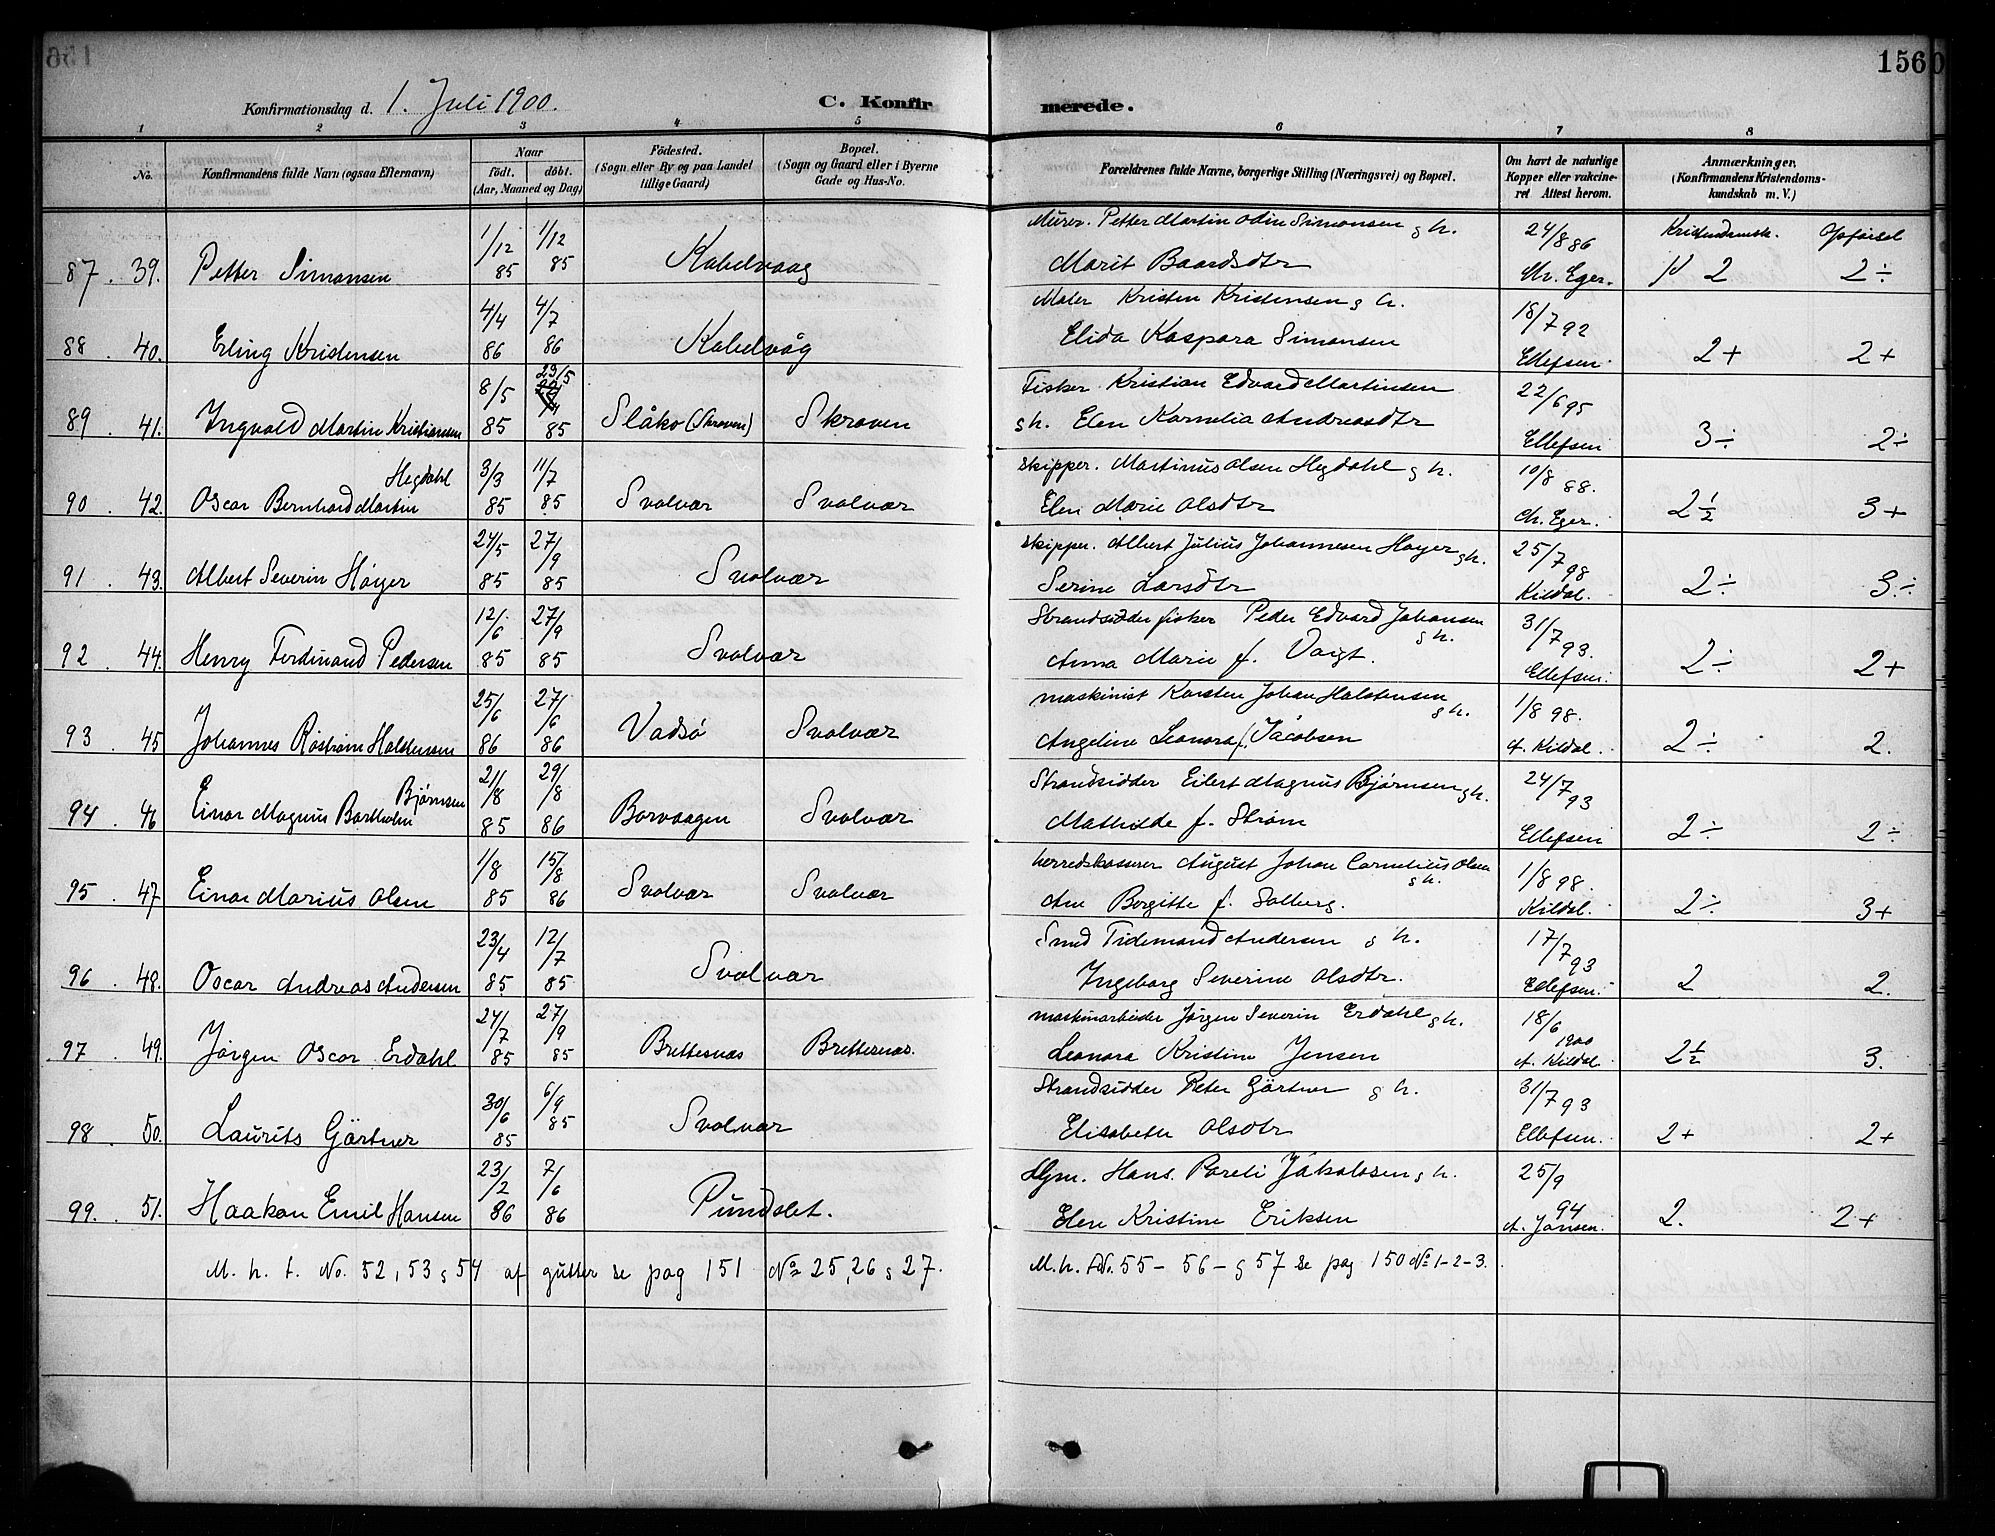 156
Konfirmationsdag d. 1. Juli 1900. C. Konfirmerede.
1 2 3 4 5 6 7 8
No. Konfirmandens fulde Navn (ogsaa Efternavn) Naar födt. döbt. (Aar, Maaned og Dag) Födested. (Sogn eller By og paa Landet tillige Gaard) Bopæl. (Sogn og Gaard eller i Byerne Gade og Hus-No. Forældrenes fulde Navne, borgerlige Stilling (Næringsvei) og Bopæl. Om havt de naturlige Kopper eller vakcineret Attest herom. Anmærkninger, (Konfirmandens Kristendomskundskab m. V.)
Kristendomsk. Opförsel
87. 39. Petter Simonsen 1/12 85 1/12 85 Kabelvaag Murer. Petter Martin Odin Simonsen g h. Marit Baardsdtr 24/8 86 Chr. Eger. 2 2÷
88. 40. Erling Kristensen 4/4 86 4/7 86 Kabelvåg Maler Kristen Kristensen g h. Elida Kaspara Simonsen 18/7 92 Ellefsen. 2+ 2+
89. 41. Ingvald Martin Kristiansen 8/5 85 29/5 85 Slåko (Skroven) Skroven Fisker. Kristian Edvard Martinsen g h. Elen Kornelia Andreasdtr 22/6 95 Ellefsen 3÷ 2÷
90. 42. Oscar Bernhard Martin Hegdahl 3/3 85 11/7 85 Svolvær Svolvær Skipper. Martinus Olsen Hegdahl g h. Elen Marie Olsdtr 10/8 88. Ch. Eger. 2½ 3+
91 43. Albert Severin Höyer 24/5 85 27/9 85 Svolvær Skipper. Albert Julius Johannesen Höyer g h. Serine Larsdtr 25/7 98 Kildal. 2÷ 3÷
92. 44. Henry Ferdinand Pedersen 12/6 85 27/9 85 Svolvær Strandsidder fisker Peder Edvard Johansen g h. Anna Marie f. Voigt. 31/7 93. Ellefsen. 2÷ 2+
93. 45 Johannes Röström Halstensen 25/6 86 27/6 86 Vadsö Svolvær maskinist Karsten Johan Halstensen g h. Angeline Leonora f. Jacobsen 1/8 98. A. Kildal. 2÷ 2.
94. 46 Einar Magnus Bartholm Bjørnsen 21/8 85 29/8 86 Borvaagen Svolvær Strandsidder Eilert Magnus Bjørnsen g h. Mathilde f. Strøm 24/7 93 Ellefsen 2÷ 2÷
95. 47 Einar Marius Olsen 1/8 85 15/8 86 Svolvær Svolvær herredskasserer August Johan Cornelius Olsen g h. Ane Bergitte f. Solberg. 1/8 98. Kildal. 2÷ 3+
96. 48. Oscar Andreas Andersen 23/4 85 12/7 85 Svolvær Smed Tidemand Andersen g h. Ingeborg Severine Olsdtr. 17/7 93 Ellefsen. 2 2.
97. 49. Jörgen Oscar Erdahl 24/7 85 27/9 85 Brettesnæs Brettesnæs. maskinarbeider Jörgen Severin Erdahl g h. Leonora Kristine Jensen 18/6 1900 A. Kildal 2½ 3.
98. 50. Laurits Gärtner 30/6 85 6/9 85 Svolvær Strandsidder Peter Gärtner g h. Elisabeth Olsdtr 31/7 93 Ellefsen. 2+ 2+
99. 51. Haakon Emil Hansen 23/2 86 7/6 86 Pundslet. Hans Pareli Jakobsen g h. Elen Kristine Eriksen 25/9 94 A. Jansen. 2. 2+
M. h. t. No. 52, 53 g 54 af gutter se pag 151 No 25, 26 g 27. M. h. t. No. 55 - 56 - g 57 se pag 150 No 1-2-3.